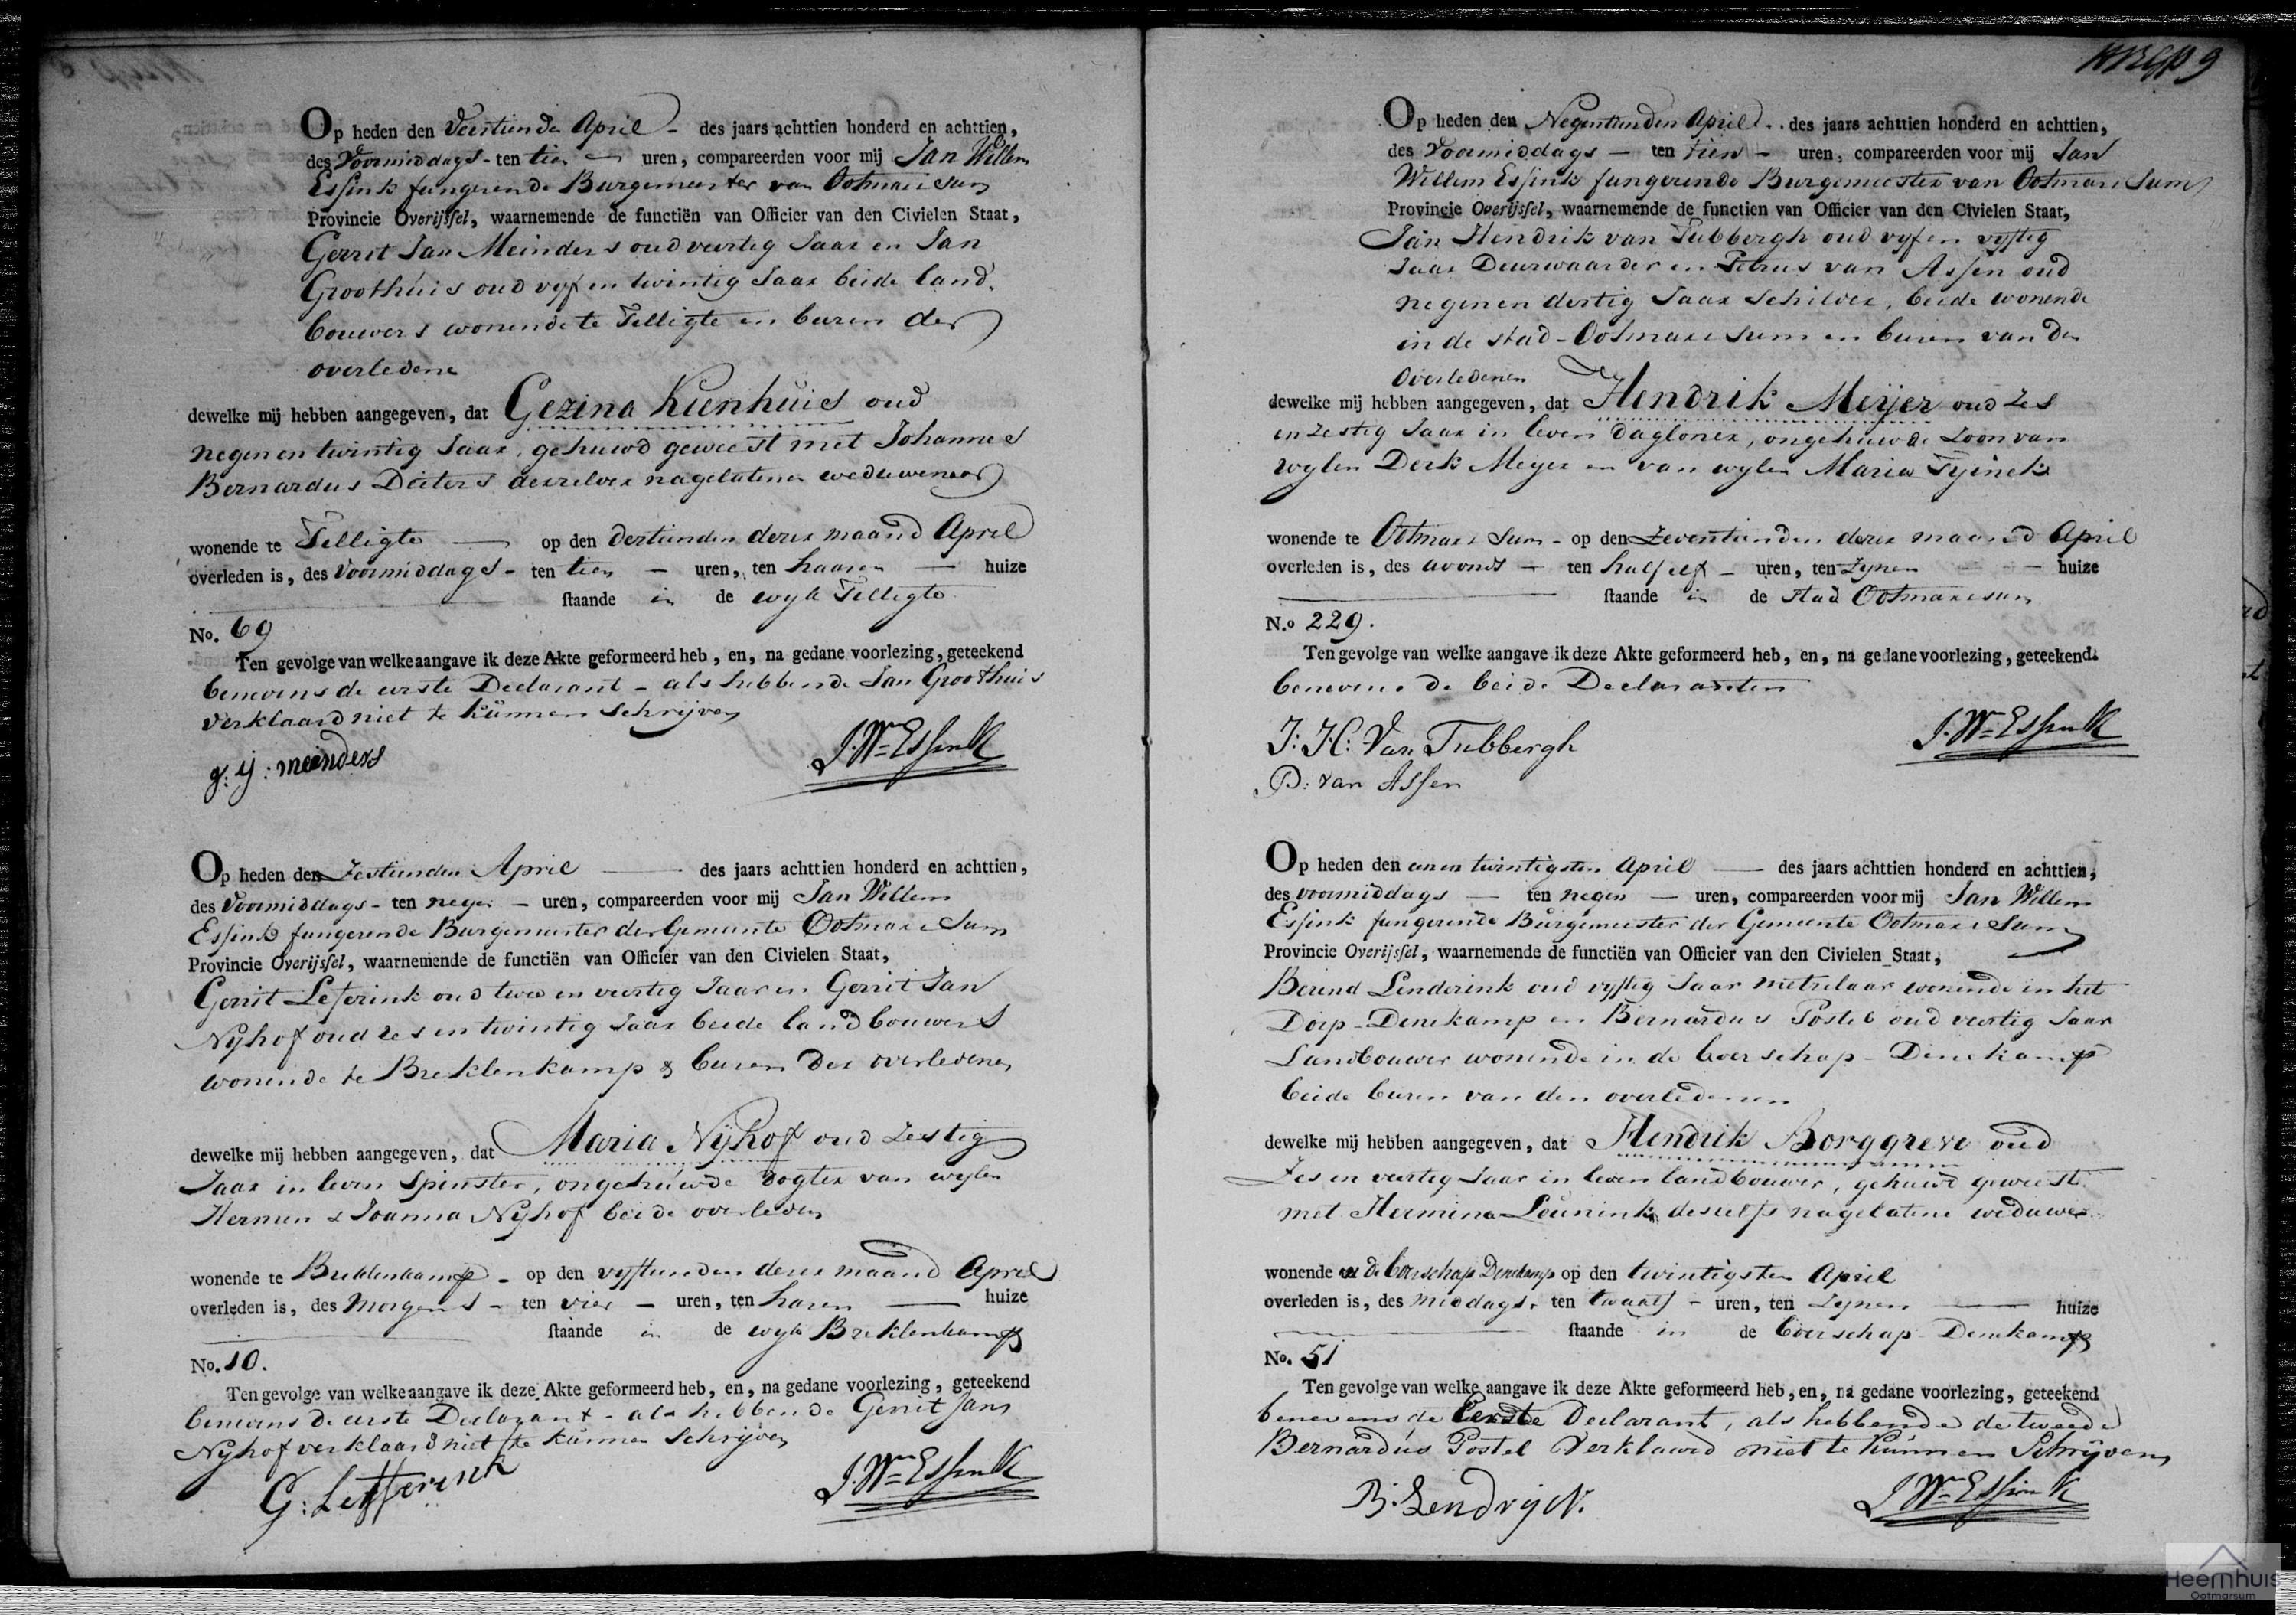 Op heden den Veertiende April - des jaars achttien honderd en achttien,
des Voormiddags - ten tien - uren, compareerden voor mij Jan Willem
Essink fungerende Burgemeester van Ootmarssum
Provincie Overijssel, waarnemende de functiën van Officier van den Civielen Staat,
Gerrit Jan Meinders oud veertig Jaar en Jan
Groothuis oud vyf en twintig Jaar beide land
bouwers wonende te Tilligte en buren der
overledene
dewelke mij hebben aangegeven, dat Gezina Kienhuis oud
negen en twintig Jaar, gehuwd geweest met Johannes
Bernardus Deiters deszelver nagelatene weduwenaar
wonende te Tilligte - op den dertienden dezer maand April
overleden is, des Voormiddags - ten tien - uren, ten haaren - huize
staande in de wyk Tilligte
No. 69
Ten gevolge van welke aangave ik deze Akte geformeerd heb, en, na gedane voorlezing, geteekend
benevens de eerste Declarant - als hebbende Jan Groothuis
verklaard niet te kunnen schrijven
g: ij: meinders J. Wm Essink
Op heden den Zestienden April - des jaars achttien honderd en achttien,
des Voormiddags - ten negen - uren, compareerden voor mij Jan Willem
Essink fungerende Burgemeester der Gemeente Ootmarssum
Provincie Overijssel, waarnemende de functiën van Officier van den Civielen Staat,
Gerrit Leferink oud twee en veertig Jaar en Gerrit Jan
Nyhof oud zes en twintig Jaar beide landbouwers
wonende te Breklenkamp & buren der overledenen
dewelke mij hebben aangegeven, dat Maria Nyhof oud zestig
Jaar in leven Spinster, ongehuwde dogter van wylen
Hermen & Joanna Nyhof beide overleden
wonende te Breklenkamp - op den vyftienden dezer maand April
overleden is, des morgens - ten vier - uren, ten haren - huize
staande in de wyk Breklenkamp
No. 10.
Ten gevolge van welke aangave ik deze Akte geformeerd heb, en, na gedane voorlezing, geteekend
benevens de eerste Declarant - als hebbende Gerrit Jan
Nyhof verklaard niet te kunnen schrijven
G: Lefferink J. Wm Essink
9
Op heden den Negentienden April - des jaars achttien honderd en achttien,
des Voormiddags - ten tien - uren, compareerden voor mij Jan
Willem Essink fungerende Burgemeester van Ootmarssum
Provincie Overijssel, waarnemende de functien van Officier van den Civielen Staat,
Jan Hendrik van Tubbergh oud vyf en vyftig
Jaar Deurwaarder en Petrus van Assen oud
negen en dertig Jaar Schilder, beide wonende
in de stad - Ootmarssum en buren van den
Overledenen
dewelke mij hebben aangegeven, dat Hendrik Meijer oud zes
en zestig Jaar in leven dagloner, ongehuwde Zoon van
wylen Derk Meyer en van wylen Maria Tyink
wonende te Ootmarssum - op den Zeventienden dezer maand April
overleden is, des avonds - ten half elf - uren, ten Zynen - huize
staande in de stad Ootmarssum
N.o 229.
Ten gevolge van welke aangave ik deze Akte geformeerd heb, en, na gedane voorlezing, geteekend.
benevens de beide Declaranten
J: H: Van Tubbergh J. Wm Essink
P: van Assen
Op heden den een en twintigsten April - des jaars achttien honderd en achttien,
des voormiddags - ten negen - uren, compareerden voor mij Jan Willem
Essink fungerende Burgemeester der Gemeente Ootmarssum
Provincie Overijssel, waarnemende de functiën van Officier van den Civielen Staat,
Berend Lenderink oud vyftig Jaar metselaar wonende in het
Dorp - Denekamp en Bernardus Postel oud veertig Jaar
Landbouwer wonende in de boerschap - Denekamp
beide buren van den overledenen
dewelke mij hebben aangegeven, dat Hendrik Borggreve oud
Zes en veertig Jaar in leven landbouwer, gehuwd geweest
met Hermina Leunink deszelfs nagelatene weduwe
wonende de boerschap Denekamp op den twintigsten April
overleden is, des middags, ten twaalf - uren, ten Zynen - huize
staande in de boerschap - Denekamp
No. 51
Ten gevolge van welke aangave ik deze Akte geformeerd heb, en, na gedane voorlezing, geteekend
benevens de Eerste Declarant, als hebbende de tweede
Bernardus Postel Verklaard niet te kunnen Schrijven
B: Lendrijk. J Wm Essink
Heemhuis
Ootmarsum